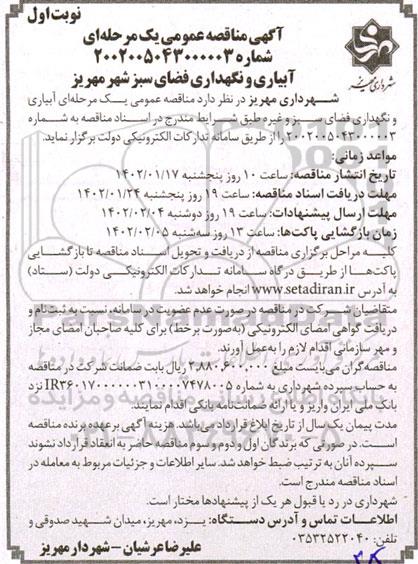 نوبت اول
آگهی مناقصه عمومی یک مرحله‌ای
شماره ۲۰۰۲۰۰۵۰۴۳۰۰۰۰۰۳
آبیاری و نگهداری فضای سبز شهر مهریز
شهرداری مهریز
شهرداری مهریز در نظر دارد مناقصه عمومی یک مرحله‌ای آبیاری
و نگهداری فضای سبز و غیره طبق شرایط مندرج در اسناد مناقصه به شماره
۲۰۰۲۰۰۵۰۴۳۰۰۰۰۰۳ را از طریق سامانه تدارکات الکترونیکی دولت برگزار نماید.
مواعد زمانی:
تاریخ انتشار مناقصه: ساعت ۱۰ روز پنجشنبه ۱۴۰۲/۰۱/۱۷
مهلت دریافت اسناد مناقصه: ساعت ۱۹ روز پنجشنبه ۱۴۰۲/۰۱/۲۴
مهلت ارسال پیشنهادات: ساعت ۱۹ روز دوشنبه ۱۴۰۲/۰۲/۰۴
زمان بازگشایی پاکت‌ها: ساعت ۱۳ روز سه‌شنبه ۱۴۰۲/۰۲/۰۵
کلیه مراحل برگزاری مناقصه از دریافت و تحویل اسناد مناقصه تا بازگشایی
پاکت‌ها از طریق درگاه سامانه تدارکات الکترونیکی دولت (ستاد)
به آدرس www.setadiran.ir انجام خواهد شد.
متقاضیان شرکت در مناقصه در صورت عدم عضویت در سامانه، نسبت به ثبت‌نام و
دریافت گواهی امضای الکترونیکی (به‌صورت برخط) برای کلیه صاحبان امضای مجاز
و مهر سازمانی اقدام لازم را به‌عمل آورند.
مناقصه‌گران می‌بایست مبلغ ۲,۸۸۰,۶۰۰,۰۰۰ ریال بابت ضمانت شرکت در مناقصه
به حساب سپرده شهرداری به شماره IR۳۶۰۱۷۰۰۰۰۰۰۳۱۰۰۰۰۷۴۷۸۰۰۵ نزد
بانک ملی ایران واریز و یا ارائه ضمانت‌نامه بانکی اقدام نمایند.
مدت پیمان یک‌سال از تاریخ ابلاغ قرارداد می‌باشد. هزینه آگهی برعهده برنده مناقصه
است. در صورتی که برندگان اول و دوم و سوم مناقصه حاضر به انعقاد قرارداد نشوند
سپرده آنان به ترتیب ضبط خواهد شد. سایر اطلاعات و جزئیات مربوط به معامله در
اسناد مناقصه مندرج است.
شهرداری در رد یا قبول هر یک از پیشنهادها مختار است.
اطلاعات تماس و آدرس دستگاه: یزد، مهریز، میدان شهید صدوقی و
تلفن: ۰۳۵۳۲۵۲۲۰۴۰
علیرضا عرشیان - شهردار مهریز